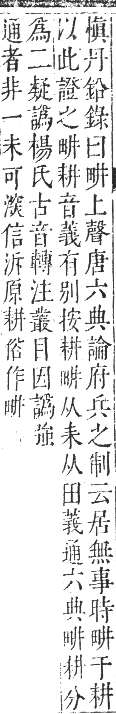 慎丹鉛錄曰畊上聲唐六典論府兵之制云居無事時畊于耕
以此證之畊耕音義有别按耕畊从耒从田義通六典畊耕分
為二疑譌楊氏古音轉注叢目因譌強
通者非一未可㴱信泝原耕俗作畊